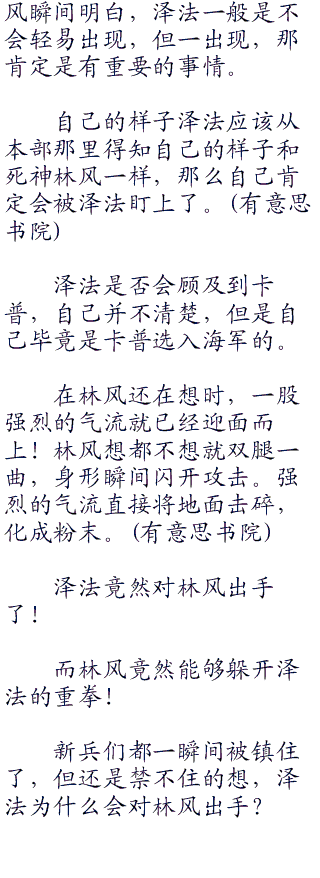 风瞬间明白，泽法一般是不
会轻易出现，但一出现，那
肯定是有重要的事情。
自己的样子泽法应该从
本部那里得知自己的样子和
死神林风一样，那么自己肯
定会被泽法盯上了。(有意思
书院)
泽法是否会顾及到卡
普，自己并不清楚，但是自
己毕竟是卡普选入海军的。
在林风还在想时，一股
强烈的气流就已经迎面而
上！林风想都不想就双腿一
曲，身形瞬间闪开攻击。强
烈的气流直接将地面击碎，
化成粉末。(有意思书院)
泽法竟然对林风出手
了！
而林风竟然能够躲开泽
法的重拳！
新兵们都一瞬间被镇住
了，但还是禁不住的想，泽
法为什么会对林风出手？